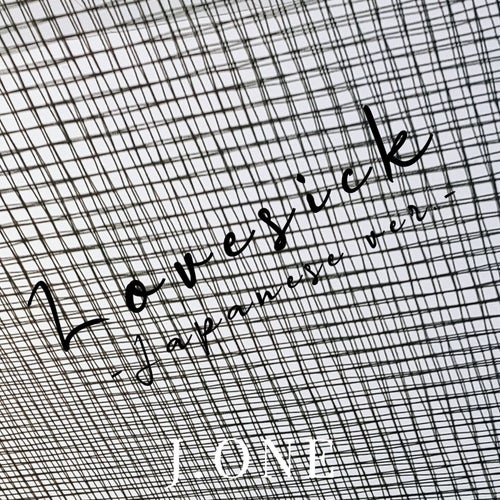 Lovesick
-Japanese ver.-
J ONE